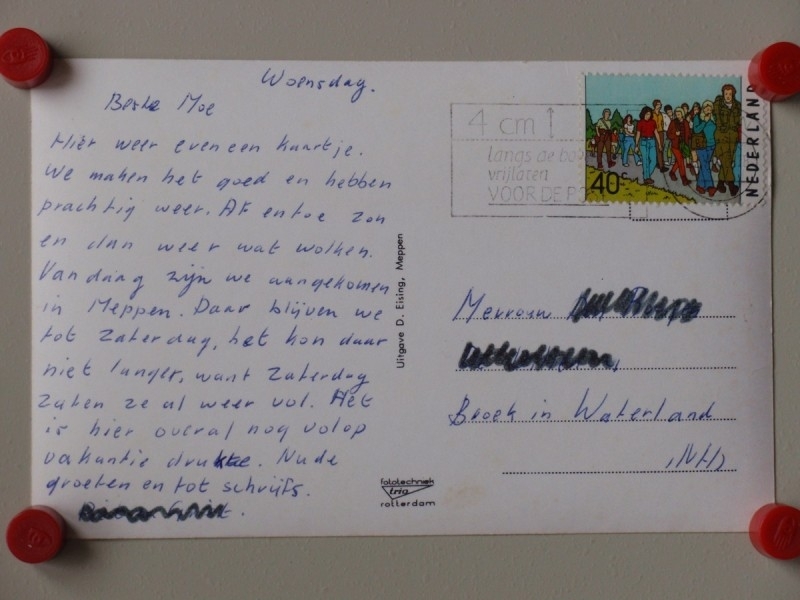 Woensdag.
Beste Moe
Hier weer even een kaartje.
We maken het goed en hebben
prachtig weer. Af en toe zon
en dan weer wat wolken.
Vandaag zijn we aangekomen
in Meppen. Daar blijven we
tot zaterdag, het kon daar
niet langer, want zaterdag
zaten ze al weer vol. Het
is hier overal nog volop
vakantie drukte.
groeten en tot schrijfs.
Uitgave D. Eising, Meppen
fototechniek
trio
rotterdam
4 cm
langs de
vrijlaten
VOOR DE
40c
NEDERLAND
Mevrouw
Broek in Waterland
(NH)